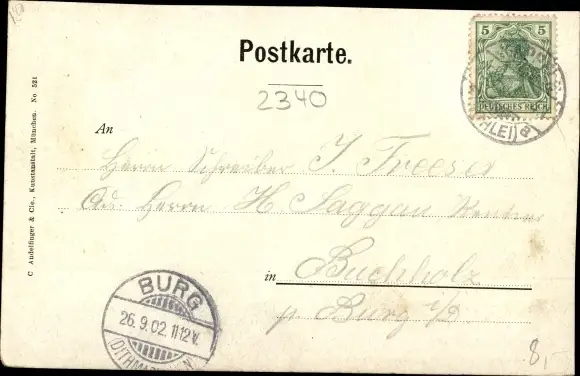 Postkarte.
2340
5 5
DEUTSCHES REICH
An
Herrn Schreiber J. Freese
Adr. Herrn H Saggau Rentner
in Buchholz
p. Burg i/D.
BURG
26.9.02.11-12V.
(DITHMARSCHEN)
C Andelfinger & Cie., Kunstanstalt, München. No 521
8,-